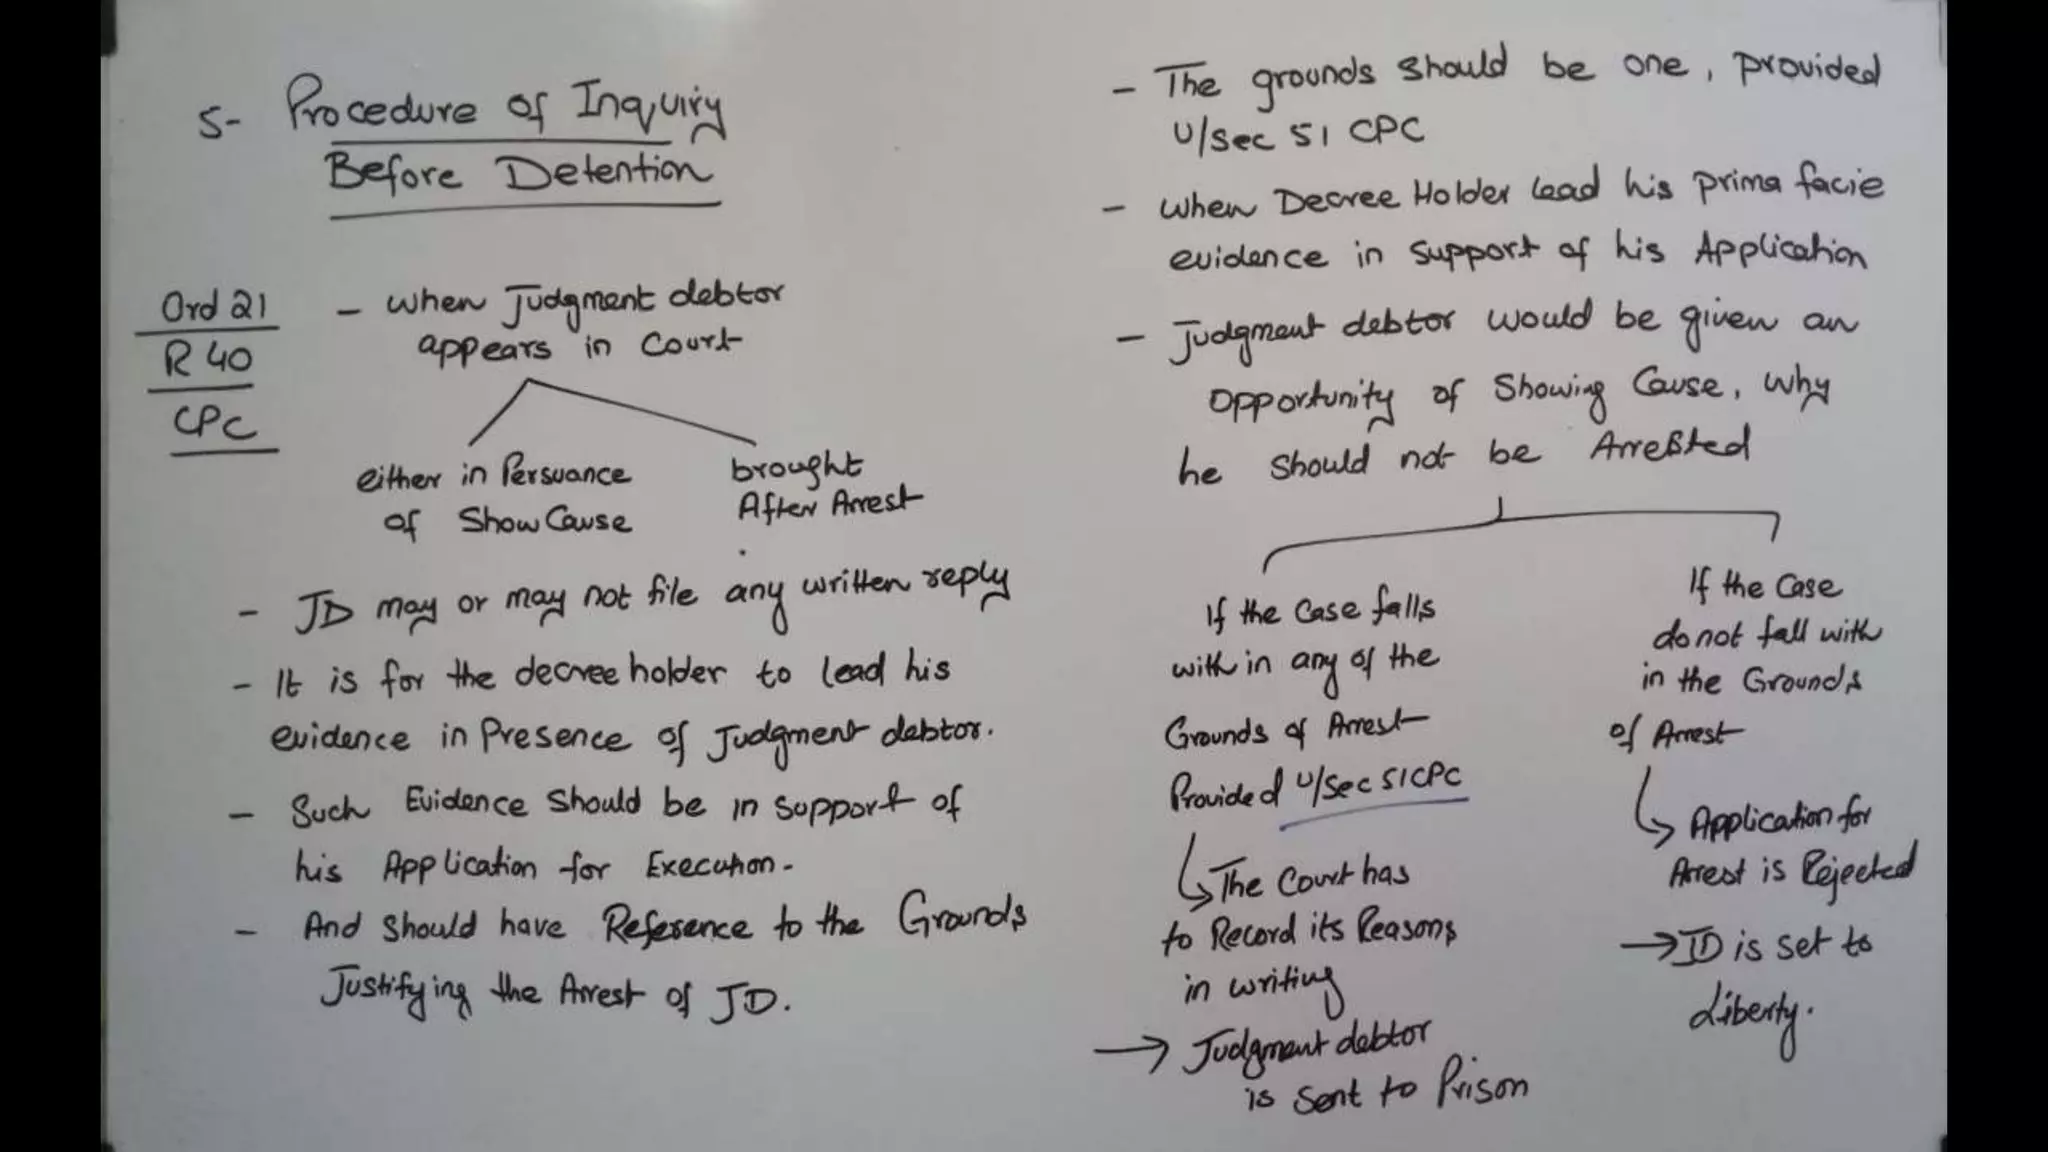 5- Procedure of Inquiry
Before Detention
Ord 21
R 40
CPC
- when Judgment debtor
appears in Court
either in Persuance
of Show Cause
brought
After Arrest
- JD may or may not file any written reply
- It is for the decree holder to lead his
evidence in Presence of Judgment debtor.
- Such Evidence should be in support of
his Application for Execution.
- And should have Reference to the Grounds
Justifying the Arrest of JD.
- The grounds should be one, provided
U/Sec 51 CPC
- when Decree Holder lead his prima facie
evidence in support of his Application
- Judgment debtor would be given an
opportunity of Showing Cause, why
he should not be Arrested
If the Case falls
with in any of the
Grounds of Arrest
Provided U/Sec 51 CPC
The Court has
to Record its Reasons
in writing
→ Judgment debtor
is sent to Prison
If the Case
do not fall with
in the Grounds
of Arrest
Application for
Arrest is Rejected
→ JD is set to
Liberty.